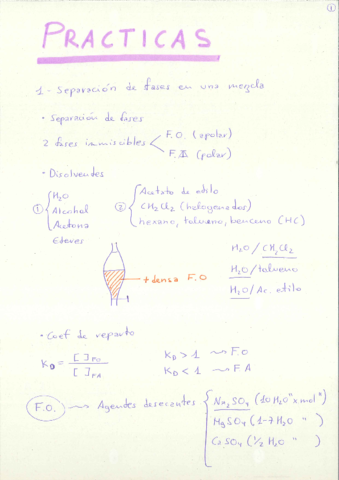 1
PRACTICAS
1- Separación de fases en una mezcla
· Separación de fases
2 fases inmiscibles
F.O. (apolar)
F.A (polar)
· Disolventes
① H2O
Alcohol
Acetona
Eteres
② Acetato de etilo
CH2Cl2 (halogenados)
hexano, tolueno, benceno (HC)
H2O / CH2Cl2
H2O / tolueno
H2O / Ac. etilo
+ densa F.O
· Coef de reparto
KD = [ ]FO / [ ]FA
KD > 1 ⇝ F.O
KD < 1 ⇝ F.A
F.O. ⇝ Agendes desecantes
Na2SO4 (10 H2O "x mol")
MgSO4 (1-7 H2O " )
CaSO4 (1/2 H2O " )